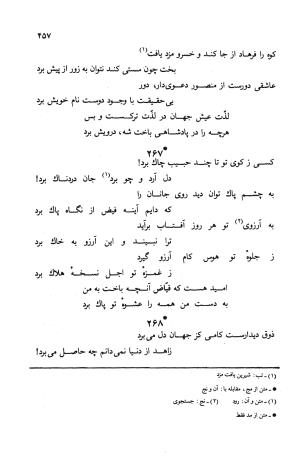 ۲۵۷
کوه را فرهاد از جا کند و خسرو مزد یافت(۱)
بخت چون سستی کند نتوان به زور از پیش برد
عاشقی دورست از منصور دعوی‌دار، دور
بی‌حقیقت با وجود دوست نام خویش برد
لذّت عیش جهان در لذّت ترکست و بس
هرچه را در پادشاهی باخت شه، درویش برد
*۲۶۷
کسی ز کوی تو تا چند حبیب چاک برد!
دل آرد و چو برد(۱) جان دردناک برد!
به چشم پاک توان دید روی جانان را
که دایم آینه فیض از نگاه پاک برد
به آرزوی(۲) تو هر روز آفتاب برآید
ترا نبیند و این آرزو به خاک برد
ز جلوهٔ تو هوس کام آرزو گیرد
ز غمزهٔ تو اجل نسخهٔ هلاک برد
امید هست که فیّاض آنچه باخت به من
به دست من همه را عشوهٔ تو پاک برد
*۲۶۸
ذوق دیدارست کامی کز جهان دل می‌برد
زاهد از دنیا نمی‌دانم چه حاصل می‌برد!
(۱)ـ تب: شیرین یافت مزد
*ـ متن از مج، مقابله با: آن و نج
(۱)ـ متن و آن: رود (۲)ـ نج: جستجوی
*ـ متن از مد فقط